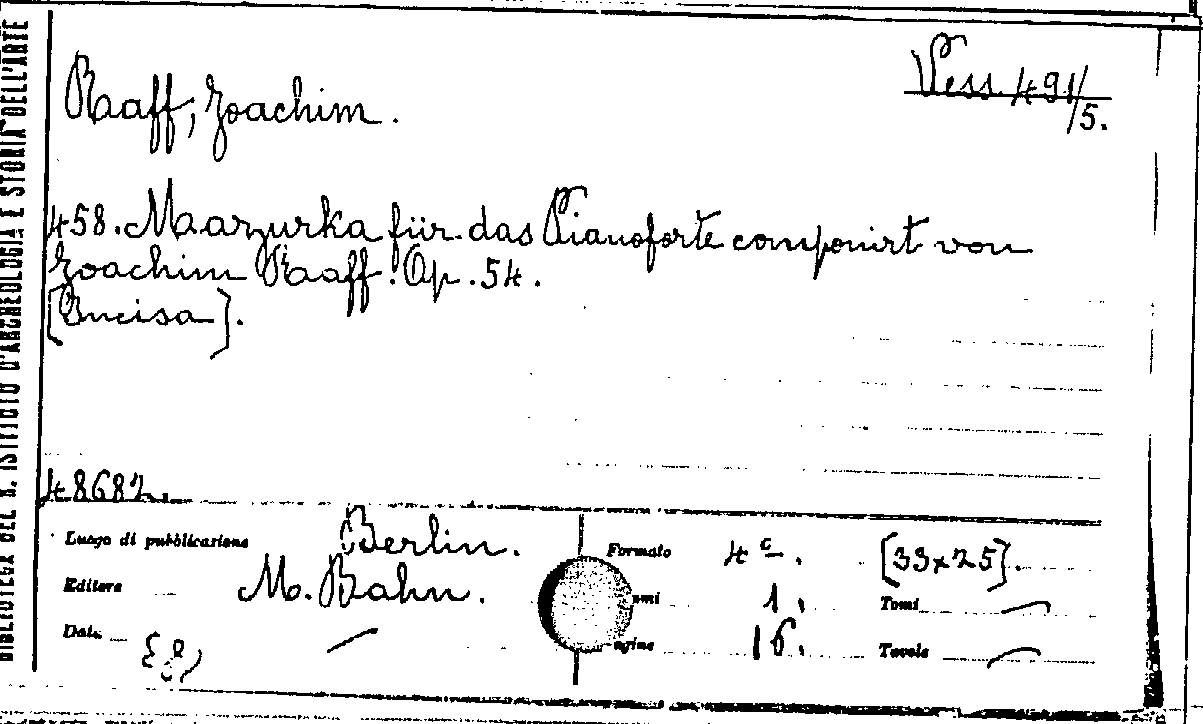 BIBLIOTECA DEL R. ISTITUTO D'ARCHEOLOGIA E STORIA DELL'ARTE
Raff, Joachim.
Vess. 491/5.
458. Maazurka für das Pianoforte componirt von
Joachim Raff. Op. 54.
[Incisa].
48682.
Luogo di pubblicazione Berlin.
Formato 4°. [33x25].
Editore M. Bahn.
umi 1. Tomi —
Data —
agine 16. Tavole —